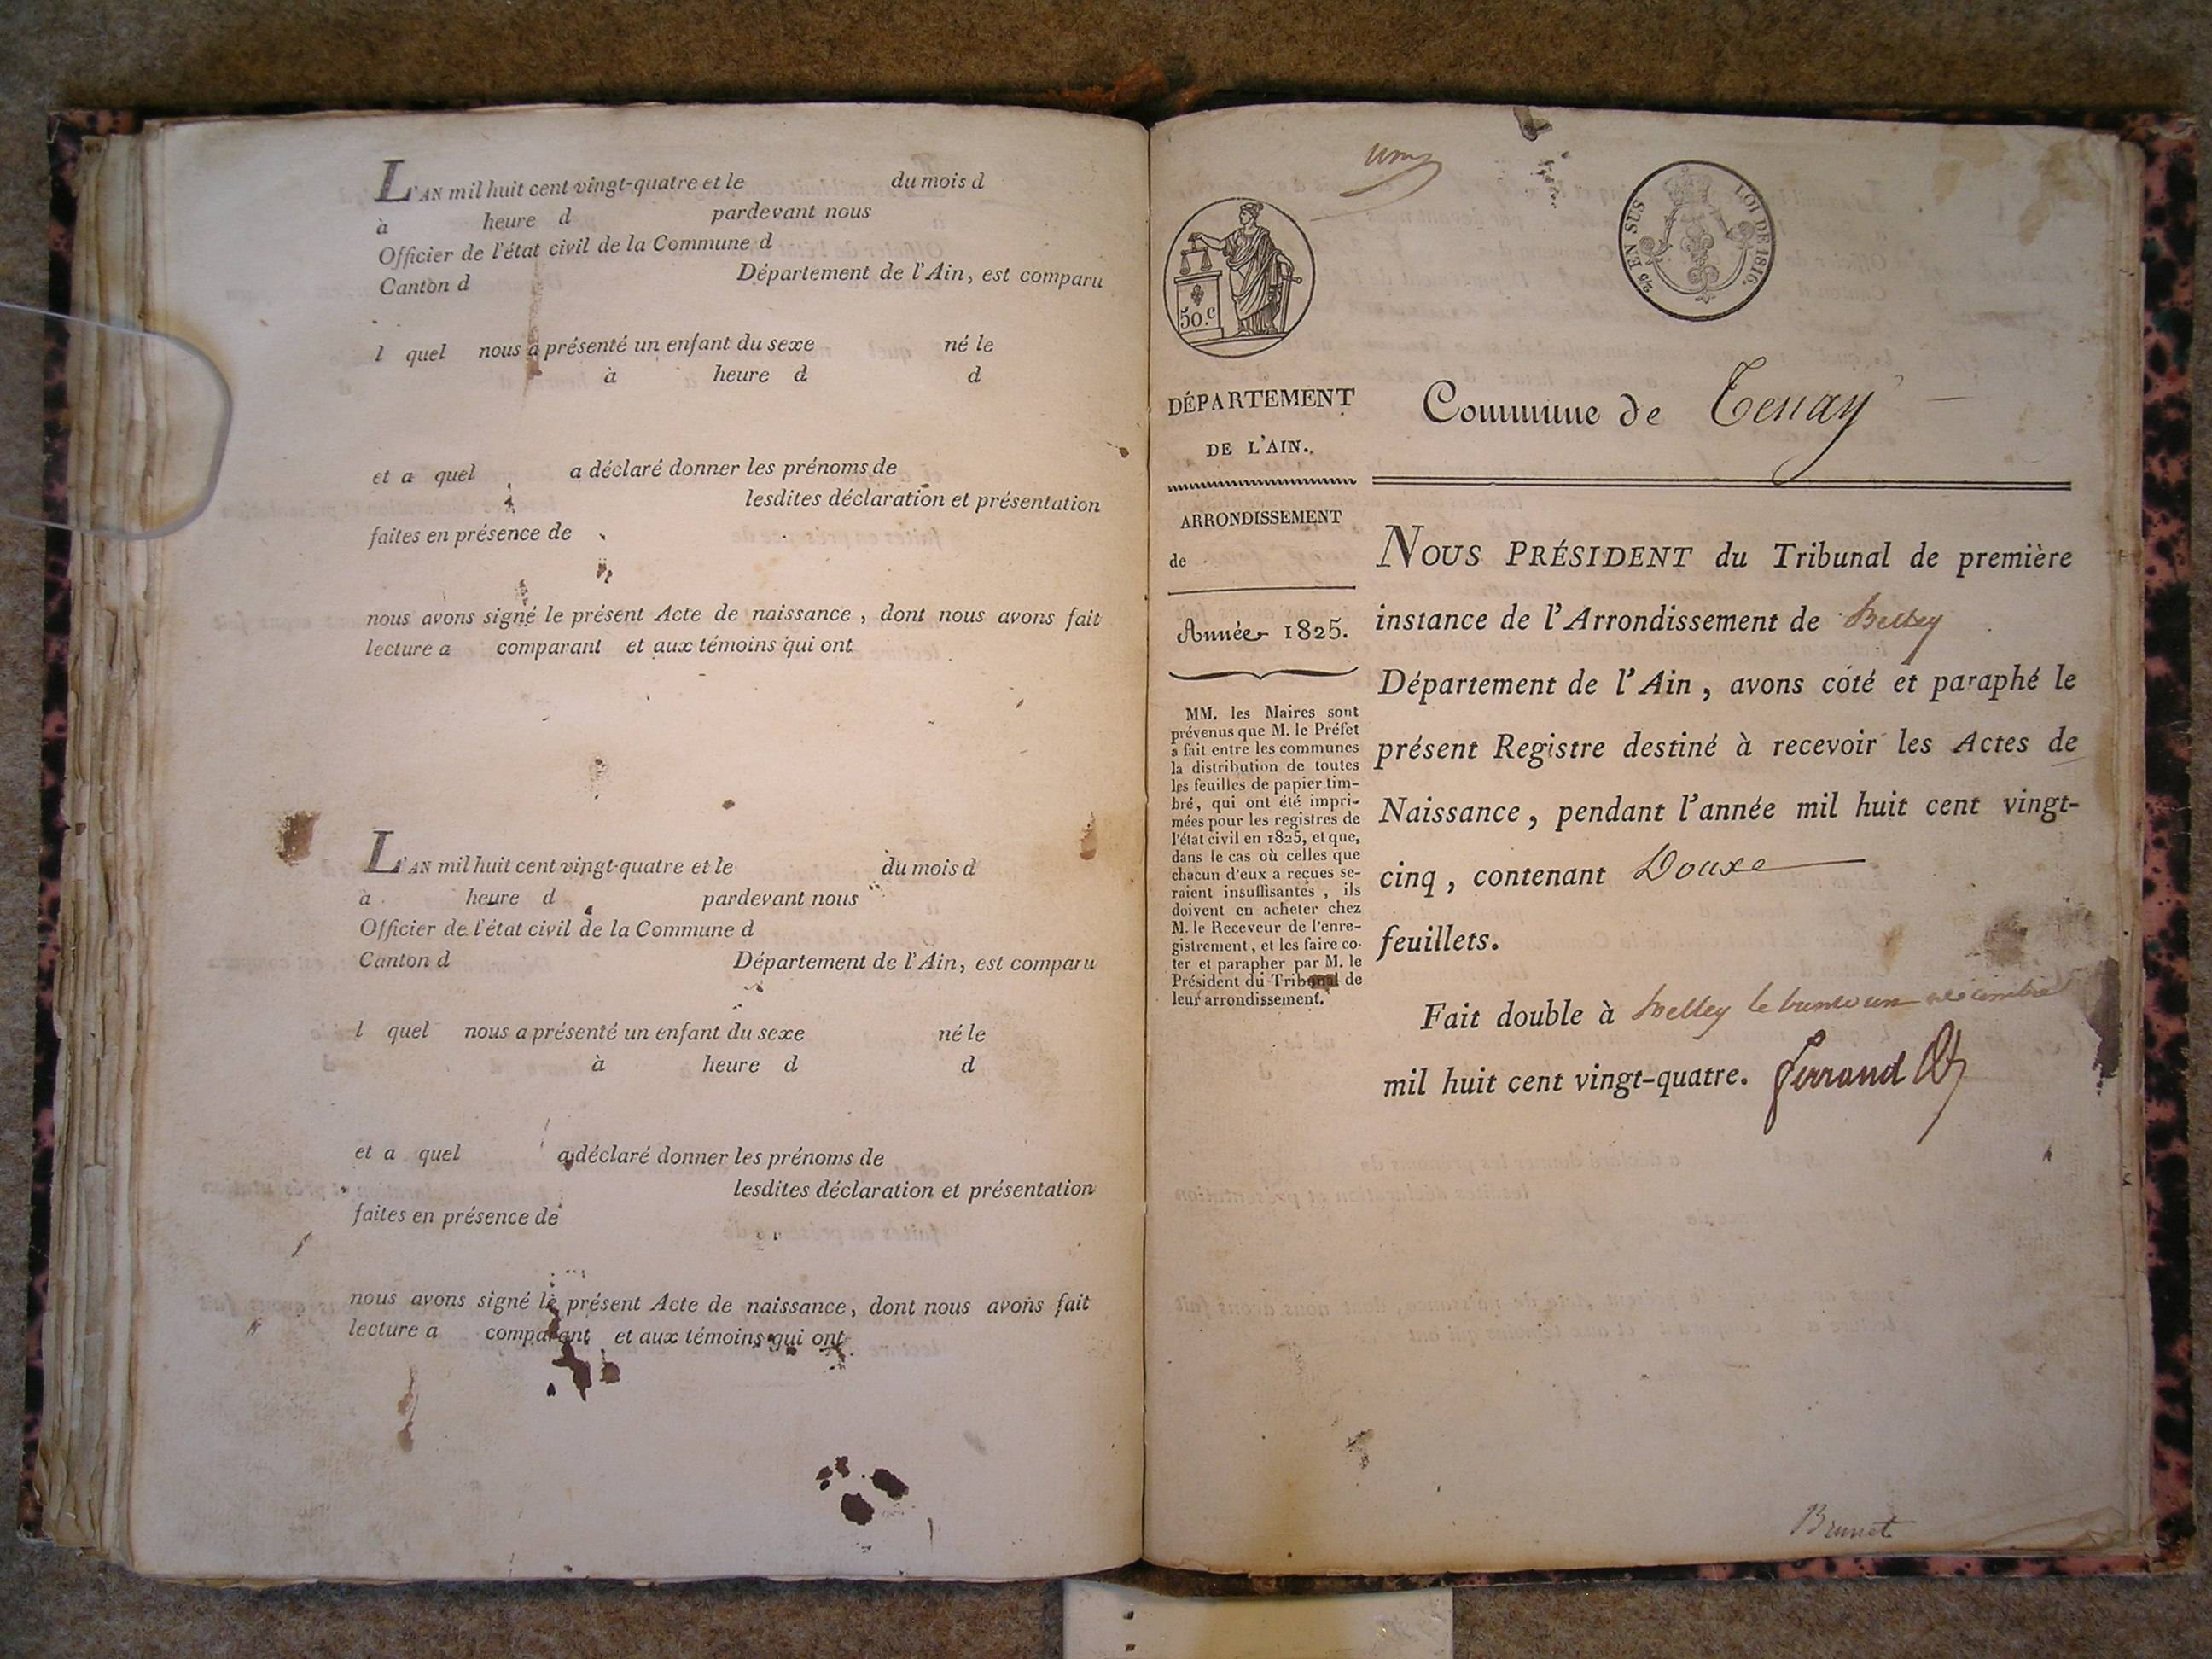 L'AN mil huit cent vingt-quatre et le du mois d
à heure d pardevant nous
Officier de l'état civil de la Commune d
Canton d Département de l'Ain, est comparu
l quel nous a présenté un enfant du sexe né le
à heure d d
et a quel a déclaré donner les prénoms de
lesdites déclaration et présentation
faites en présence de
nous avons signé le présent Acte de naissance, dont nous avons fait
lecture a comparant et aux témoins qui ont
L'AN mil huit cent vingt-quatre et le du mois d
à heure d pardevant nous
Officier de l'état civil de la Commune d
Canton d Département de l'Ain, est comparu
l quel nous a présenté un enfant du sexe né le
à heure d d
et a quel a déclaré donner les prénoms de
lesdites déclaration et présentation
faites en présence de
nous avons signé le présent Acte de naissance, dont nous avons fait
lecture a comparant et aux témoins qui ont
50.c
2/5 EN SUS
LOI DE 1816.
DÉPARTEMENT
DE L'AIN.
ARRONDISSEMENT
de
Année 1825.
MM. les Maires sont
prévenus que M. le Préfet
a fait entre les communes
la distribution de toutes
les feuilles de papier tim-
bré, qui ont été impri-
mées pour les registres de
l'état civil en 1825, et que,
dans le cas où celles que
chacun d'eux a reçues se-
raient insuffisantes, ils
doivent en acheter chez
M. le Receveur de l'enre-
gistrement, et les faire co-
ter et parapher par M. le
Président du Tribunal de
leur arrondissement.
Commune de Tenay
NOUS PRÉSIDENT du Tribunal de première
instance de l'Arrondissement de Belley
Département de l'Ain, avons coté et paraphé le
présent Registre destiné à recevoir les Actes de
Naissance, pendant l'année mil huit cent vingt-
cinq, contenant Douze
feuillets.
Fait double à Belley le trente un décembre
mil huit cent vingt-quatre. Ferrand
Brunet